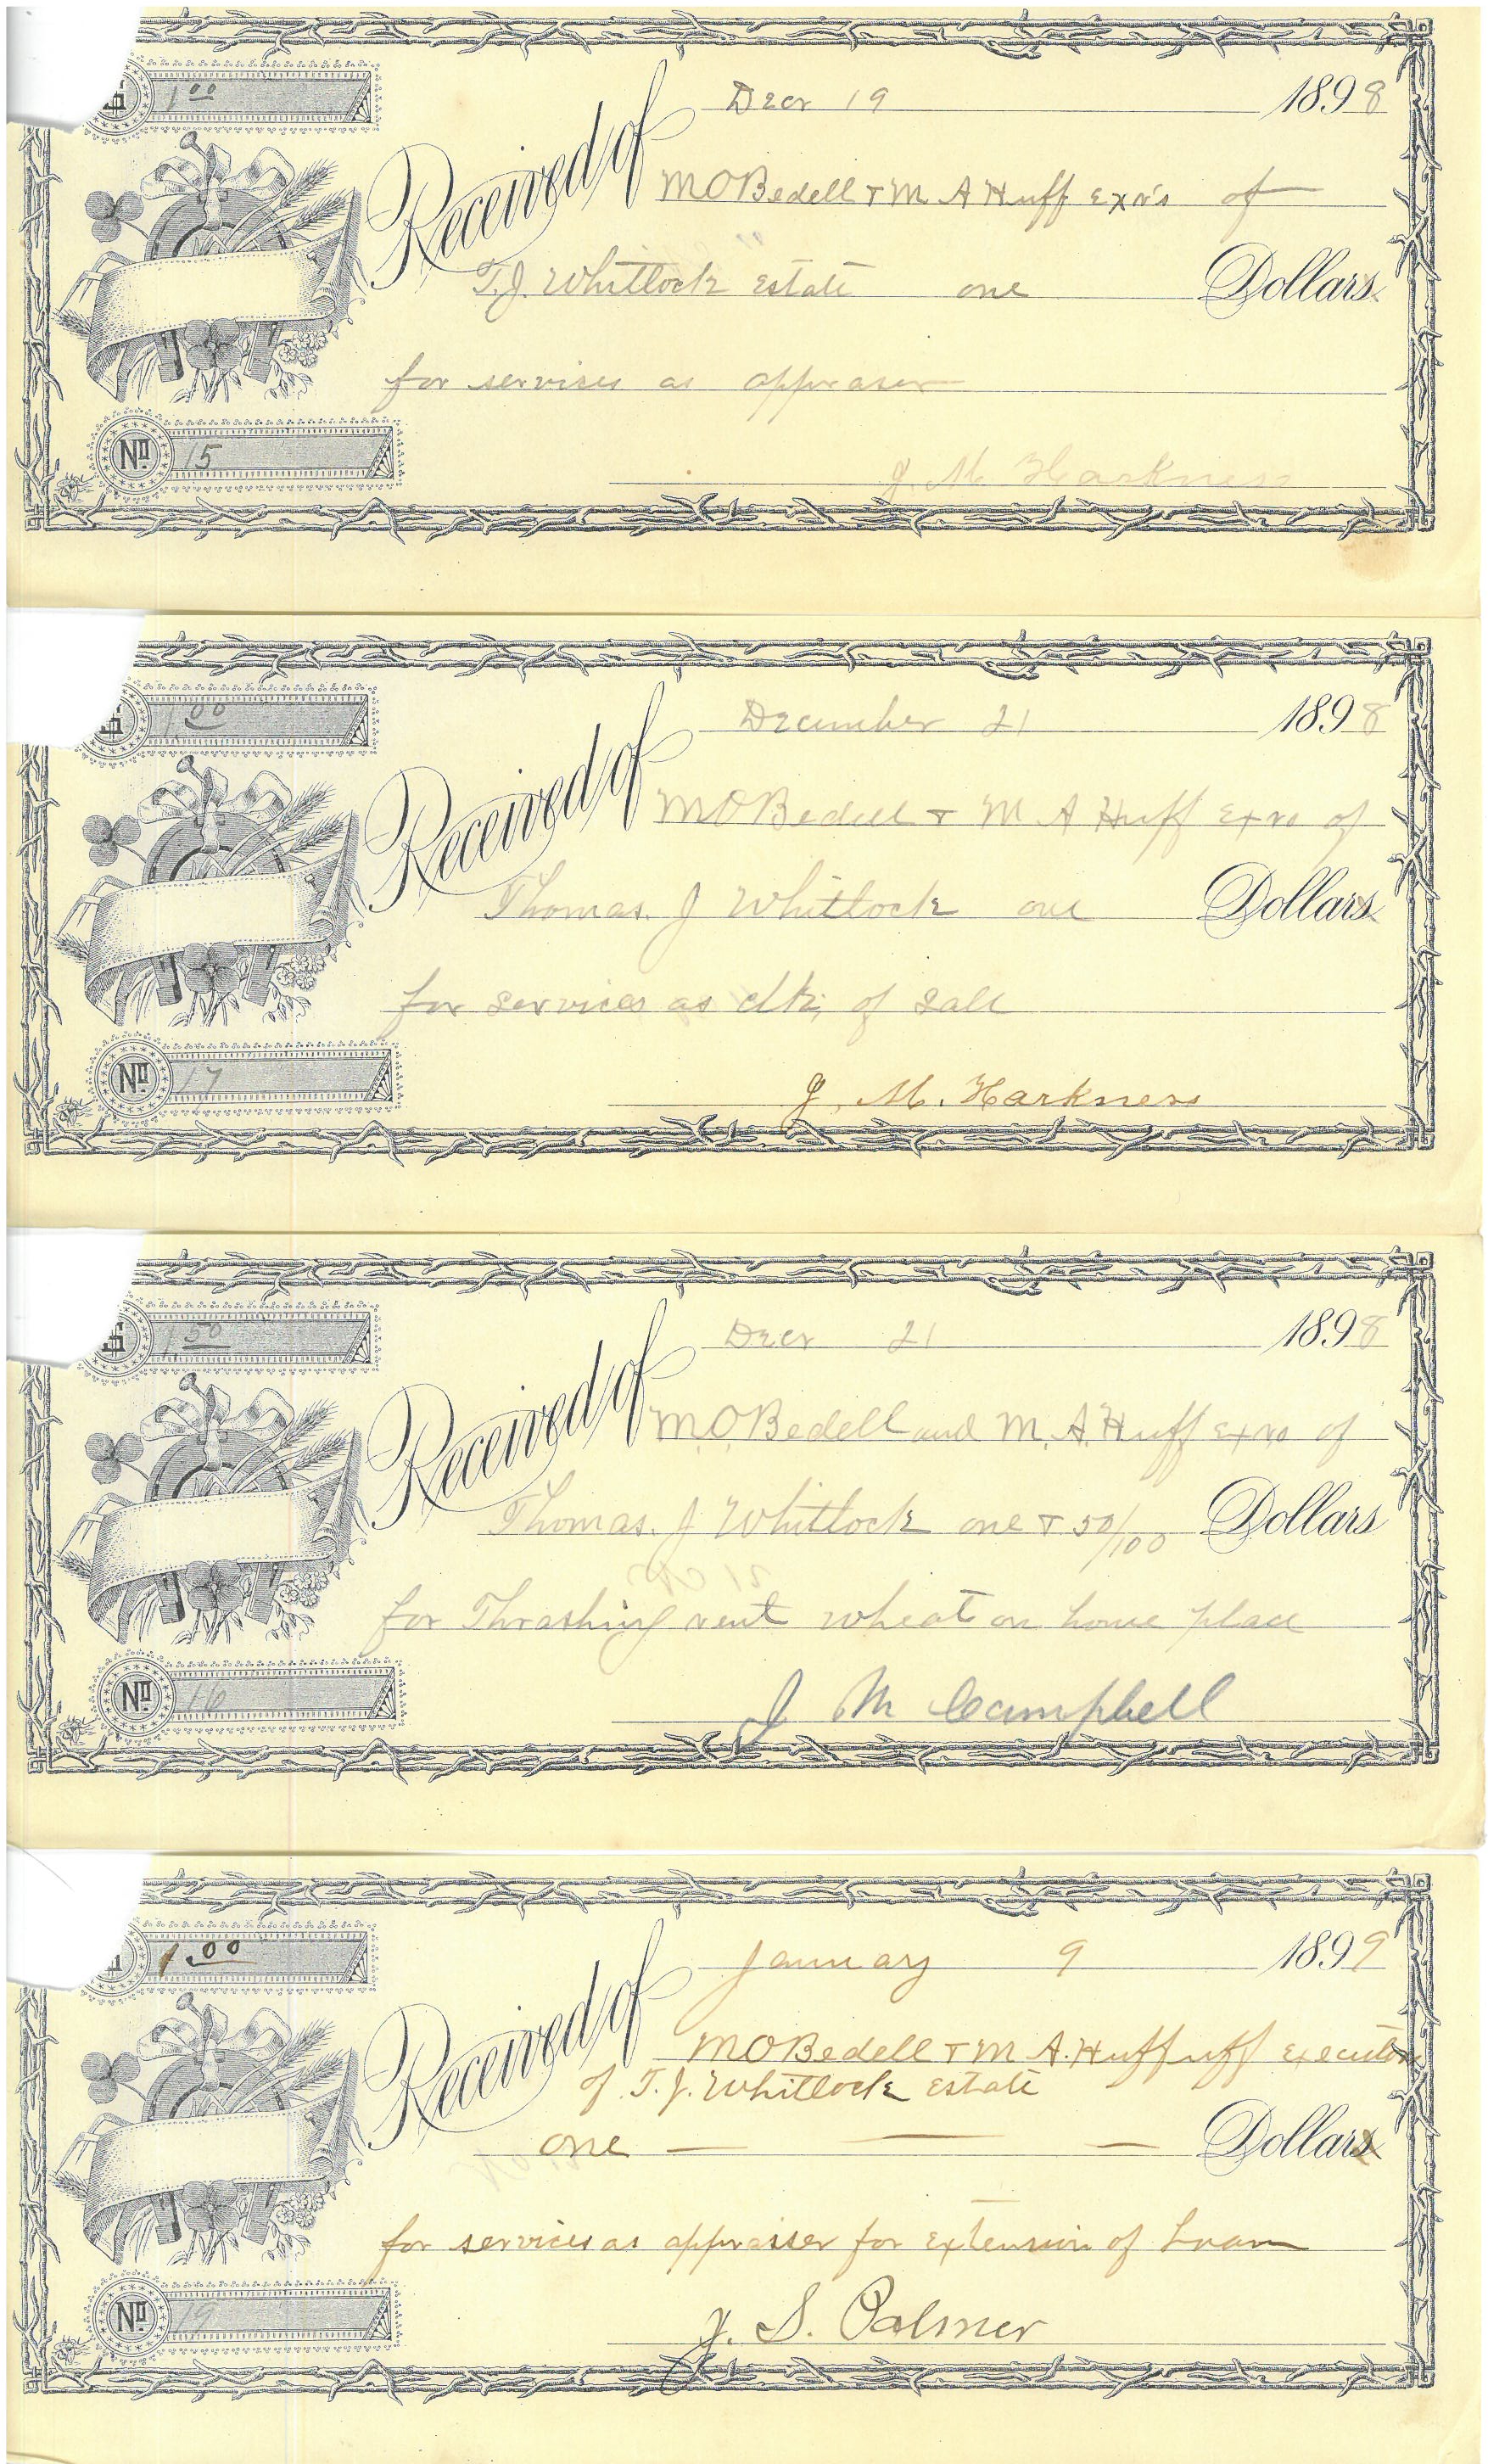 $ 1.00
Decr 19 1898
Received of M O Bedell + M A Huff Exr's of
T.J. Whitlock Estate one Dollars
for servises as appraser
No. 15
J. M. Harkness
$ 1.00
December 21 1898
Received of M O Bedell + M A Huff Exrs of
Thomas. J Whitlock one Dollars
for services as clk; of sale
No. 17
J. M. Harkness
$ 1.50
Decr 21 1898
Received of M.O. Bedell and M. A. Huff Exrs of
Thomas. J Whitlock one + 50/100 Dollars
for Thrashing rent wheat on home place
No. 16
J M Campbell
$ 1.00
January 9 1899
Received of M O Bedell + M A. Huffuff Executors
of T. J. Whitlock Estate
one Dollars
for services as appraiser for Extension of Loan
No. 19
J. S. Palmer